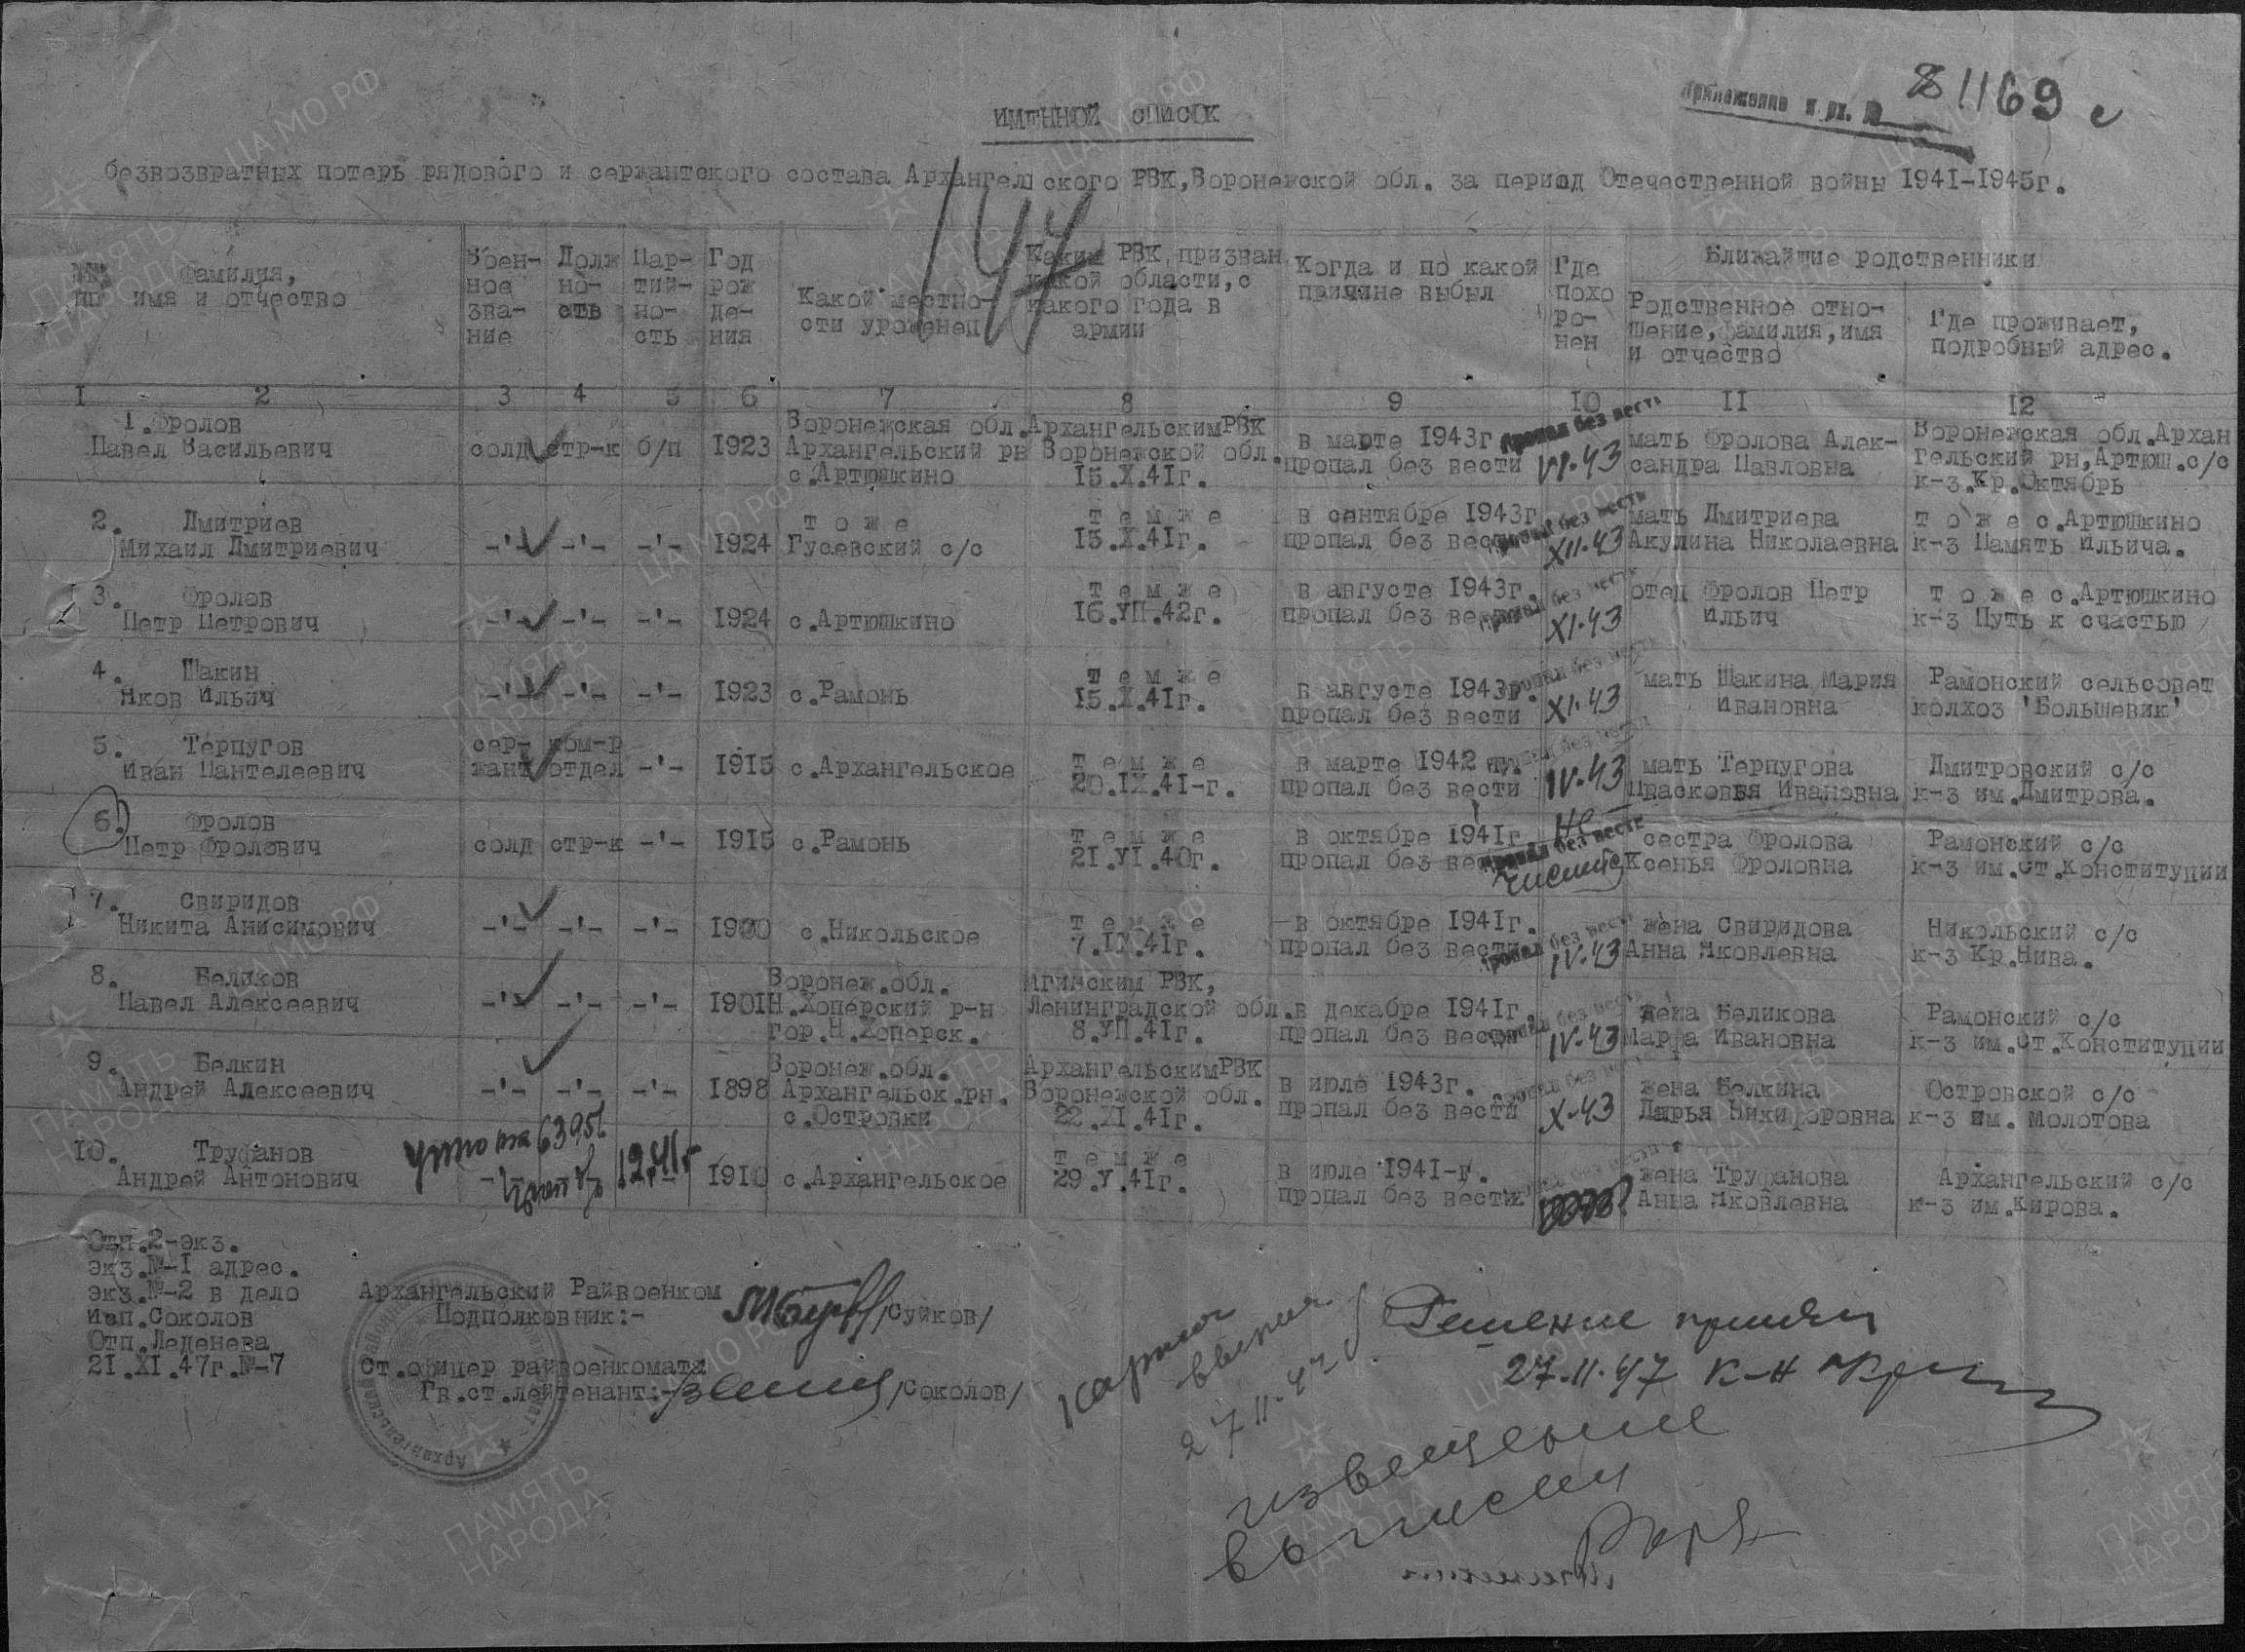 Приложение к вх. № 81169 с
ИМЕННОЙ СПИСОК
безвозвратных потерь рядового и сержантского состава Архангельского РВК, Воронежской обл. за период Отечественной войны 1941-1945г.
147
№№ пп Фамилия, имя и отчество
Воен-ное зва-ние
Долж но-сть
Пар-тий-но-сть
Год рож де-ния
Какой местно-сти уроженец
Каким РВК призван какой области, с какого года в армии
Когда и по какой причине выбыл
Где похо ро-нен
Ближайшие родственники
Родственное отно-шение, фамилия, имя и отчество
Где проживает, подробный адрес.
1 2 3 4 5 6 7 8 9 10 11 12
1. Фролов Воронежская обл. Архангельским РВК пропал без вести Воронежская обл. Архан
Павел Васильевич солд стр-к б/п 1923 Архангельский рн Воронежской обл. в марте 1943г. мать Фролова Алек- гельский рн, Артюш. с/с
с. Артюшкино 15.X.41г. пропал без вести VI-43 сандра Павловна к-з. Кр. Октябрь
2. Дмитриев т о ж е т е м ж е в сентябре 1943г пропал без вести мать Дмитриева т о ж е с. Артюшкино
Михаил Дмитриевич -'- -'- -'- 1924 Гусевский с/с 15.X.41г. пропал без вести XII-43 Акулина Николаевна к-з Память Ильича.
3. Фролов т е м ж е в августе 1943г. пропал без вести отец Фролов Петр т о ж е с. Артюшкино
Петр Петрович -'- -'- -'- 1924 с. Артюшкино 16.УП.42г. пропал без вести XI-43 Ильич к-з Путь к счастью
4. Шакин т е м ж е пропал без вести мать Шакина Мария Рамонский сельсовет
Яков Ильич -'- -'- -'- 1923 с. Рамонь 15.X.41г. в августе 1943г. пропал без вести XI-43 Ивановна колхоз 'Большевик'
5. Терпугов сер- ком-р т е м ж е в марте 1942 г. пропал без вести мать Терпугова Дмитровский с/с
Иван Пантелеевич жант отдел -'- 1915 с. Архангельское 20.IX.41-г. пропал без вести IV-43 Прасковья Ивановна к-з им. Дмитрова.
6. Фролов т е м ж е в октябре 1941г. пропал без вести не сестра Фролова Рамонский с/с
Петр Фролович солд стр-к -'- 1915 с. Рамонь 21.УI.40г. пропал без вести Ксенья Фроловна к-з им. Ст. Конституции
7. Свиридов т е м ж е в октябре 1941г. пропал без вести жена Свиридова Никольский с/с
Никита Анисимович -'- -'- -'- 1900 с. Никольское 7.IX.41г. пропал без вести IV-43 Анна Яковлевна к-з Кр. Нива.
8. Беликов Воронеж. обл. Мгинским РВК, пропал без вести жена Беликова Рамонский с/с
Павел Алексеевич -'- -'- -'- 1901 Н. Хоперский р-н Ленинградской обл. в декабре 1941г. Марфа Ивановна к-з им. Ст. Конституции
гор. Н. Хоперск. 8.УП.41г. пропал без вести IV-43
9. Белкин Воронеж. обл. Архангельским РВК в июле 1943г. пропал без вести жена Белкина Островской с/с
Андрей Алексеевич -'- -'- -'- 1898 Архангельск. рн. Воронежской обл. пропал без вести X-43 Дарья Никифоровна к-з им. Молотова
с. Островки 22.XI.41г.
10. Труфанов 12.41г т е м ж е в июле 1941-г. пропал без вести жена Труфанова Архангельский с/с
Андрей Антонович 1910 с. Архангельское 29.У.41г. пропал без вести Анна Яковлевна к-з им. Кирова.
Отп. 2-экз.
экз. №-1 адрес.
экз. №-2 в дело
исп. Соколов
Отп. Леденева
21.XI.47г. №-7
Архангельский Райвоенком
Подполковник:- /Суйков/
Ст. офицер райвоенкомата
Гв. ст. лейтенант:- /Соколов/
27.11.47
Решение принял
27.11.47 к-н
извещение
выписали